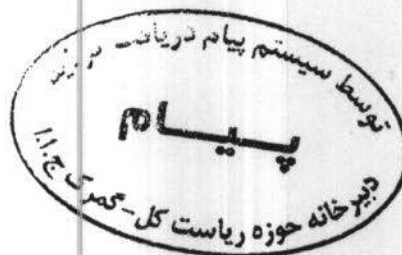 توسط سیستم پیام دریافت گردید
پیام
دبیرخانه حوزه ریاست کل - گمرک ج.ا.ا